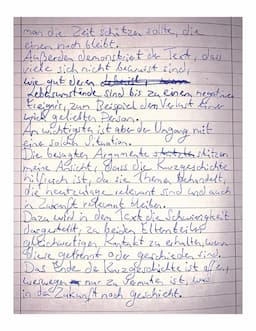 man die Zeit schätzen sollte, die
einem noch bleibt.
Außerdem demonstriert der Text, dass
viele sich nicht bewusst sind,
wie gut deren
Lebensumstände sind bis zu einem negativen
Ereignis, zum Beispiel dem Verlust einer
geliebten Person.
Am wichtigsten ist aber der Umgang mit
einer solchen Situation.
Die besagten Argumente stützen
meine Ansicht, dass die Kurzgeschichte
hilfreich ist, da sie Themen behandelt,
die heutzutage relevant sind und auch
in Zukunft relevant bleiben.
Dazu wird in dem Text die Schwierigkeit
dargestellt, zu beiden Elternteilen
gleichwertigen Kontakt zu erhalten, wenn
diese getrennt oder geschieden sind.
Das Ende der Kurzgeschichte ist offen,
weswegen nur zu vermuten ist, was
in der Zukunft noch geschieht.